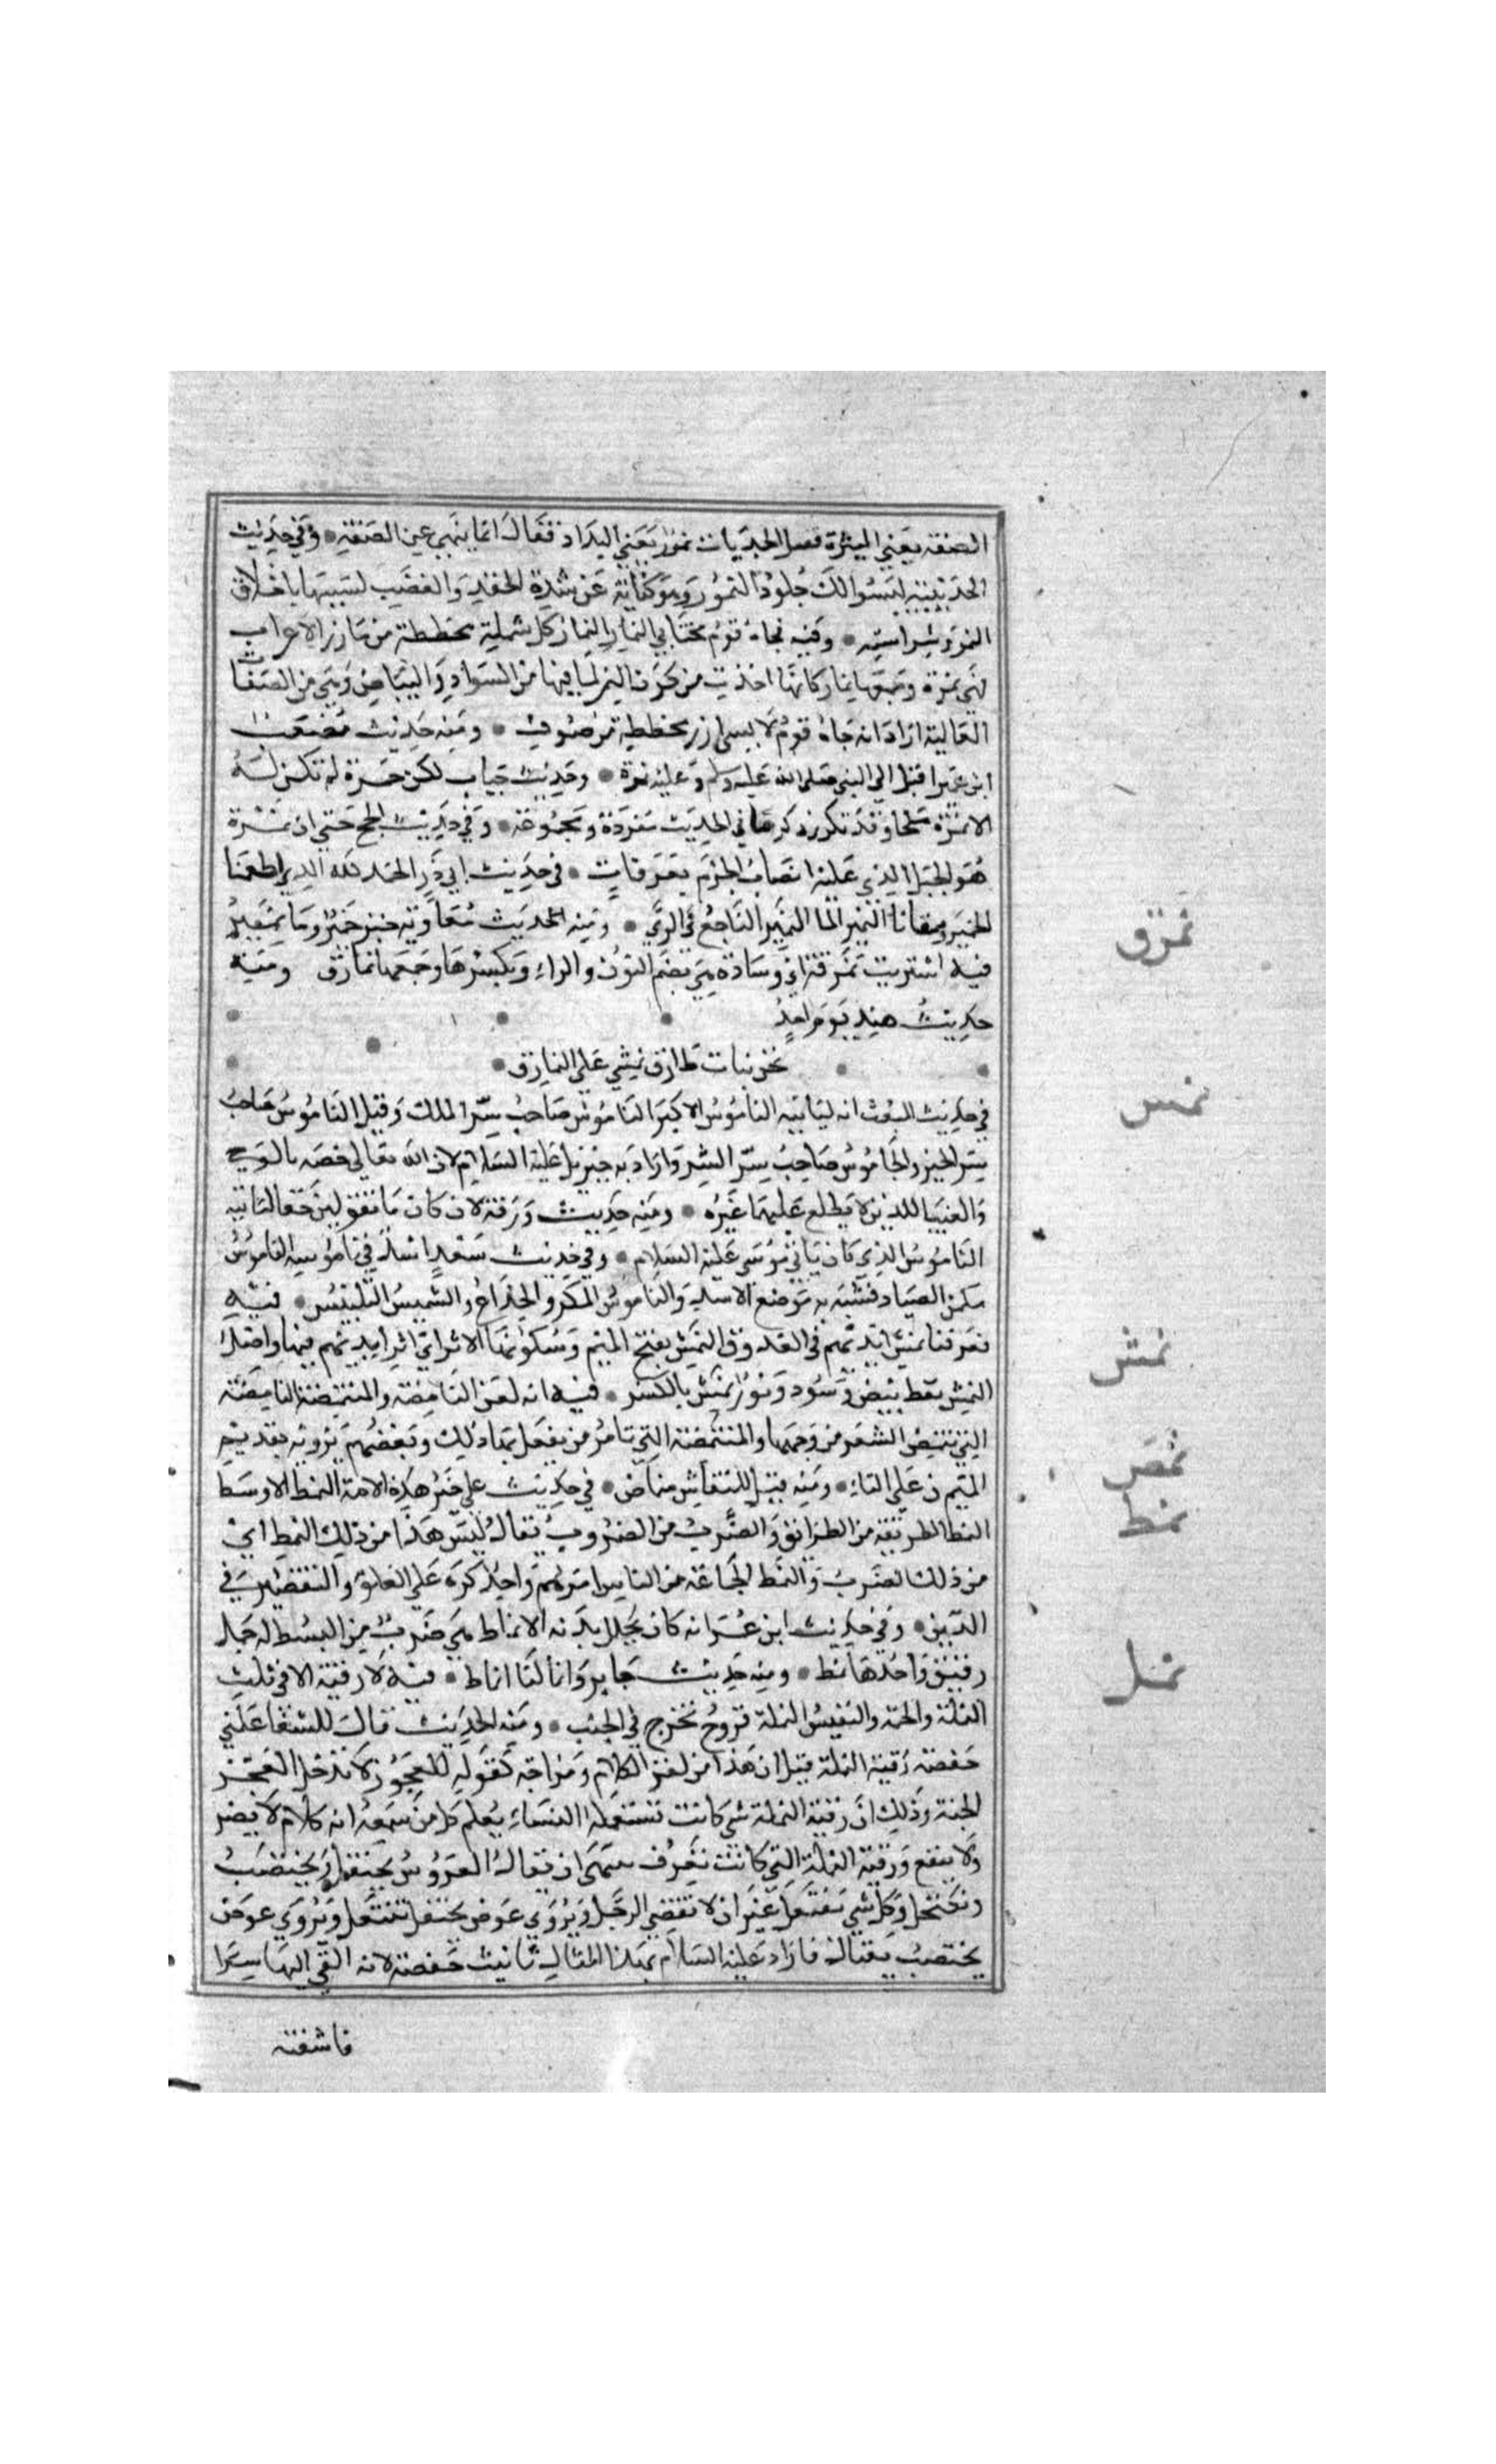 الصفه يعني الميثرة فقيل الجديات نمور يعني البداد فقال انما ينهي عن الصفة • وفي حديث
الحديبية لبسوا لك جلود النمور وهو كناية عن شدة الحقد والغضب تشبيها باخلاق
النمر وشراسته • وفيه فجاه قوم مجتابي النمار النمار كل شملة مخططة من مازر الاعراب
فهي نمرة وجمعها نمار كانها اخذت من لون النمر لما فيها من السواد والبياض وهي من الصفات
الغالبة اراد انه جاه قوم لابسي ازر مخططة من صوف • ومنه حديث مصعب
ابن عمير اقبل الي النبي صلى الله عليه وسلم وعليه نمرة • وحديث خباب لكن حمزة لم تكن له
الا نمرة ملحا وقد تكرر ذكرها في الحديث مفردة ومجموعة • وفي حديث الحج حتي اتي نمرة
هو الجبل الذي عليه انصاب الحرم بعرفات • في حديث ابي ذر الحمد لله الذي اطعمنا
الخمير وسقانا النمير الما النمير الناجع في الري • ومنه الحديث معاوية خبز خمير وما نمير
نمرق
فيه اشتريت نمرقة اي وسادة هي بضم النون والراء وبكسرها وجمعها نمارق ومنه
حديث هند يوم احد
نحن بنات طارق نمشي علي النمارق •
نمس
في حديث المبعث انه لياتيه الناموس الاكبر الناموس صاحب سر الملك وقيل الناموس صاحب
سر الخير والجاموس صاحب سر الشر واراد به جبريل عليه السلام لان الله تعالي خصه بالوحي
والغيب اللذين لا يطلع عليهما غيره • ومنه حديث ورقة لان كان ما تقولين حقا لياتيه
الناموس الذي كان ياتي موسي عليه السلام • وفي حديث سعد اسد في ناموسه الناموس
مكمن الصياد فشبه به موضع الاسد والناموس المكر والخداع والتنميس التلبيس • فيه
نمش
فعرفنا نمش ايديهم في العذوق النمش بفتح الميم وسكونها الاثر اي اثر ايديهم فيها واصل
النمش نقط بيض وسود وثور نمش بالكسر • فيه انه لعن النامصة والمتنمصة النامصة
نمص
التي تنتف الشعر من وجهها والمتنمصة التي تامر من يفعل بها ذلك وبعضهم يرويه بتقديم
الميم علي التاء • ومنه قيل للمنقاش منماص • في حديث علي خير هذه الامة النمط الاوسط
نمط
النمط الطريقة من الطرائق والضرب من الضروب يقال ليس هذا من ذلك النمط اي
من ذلك الضرب والنمط الجماعة من الناس امرهم واحد كره علي الغلو والتقصير في
الدين • وفي حديث ابن عمر انه كان يجلل بدنه الانماط هي ضرب من البسط له خمل
رقيق واحدها نمط • ومنه حديث جابر وانا لنا انماط • فيه لا رقية الا في ثلث
نمل
النملة والحمة والنفس النملة قروح تخرج في الجنب • ومنه الحديث قال للشفا علمي
حفصة رقية النملة قيل ان هذا من لغز الكلام ومزاحه كقوله للعجوز لا تدخل العجز
الجنة وذلك ان رقية النملة شي كانت تستعمله النساء يعلم كل من سمعه انه كلام لا يضر
ولا ينفع ورقية النملة التي كانت تعرف بينهن ان يقال العروس تحتفل وتختضب
وتكتحل وكل شي تفتعل غير ان لا تعصي الرجل ويروي عوض تحتفل تنتعل ويروي عوض
تختضب تقتال فاراد عليه السلام بهذا المقال تانيب حفصة لانه القي اليها سرا
فافشته